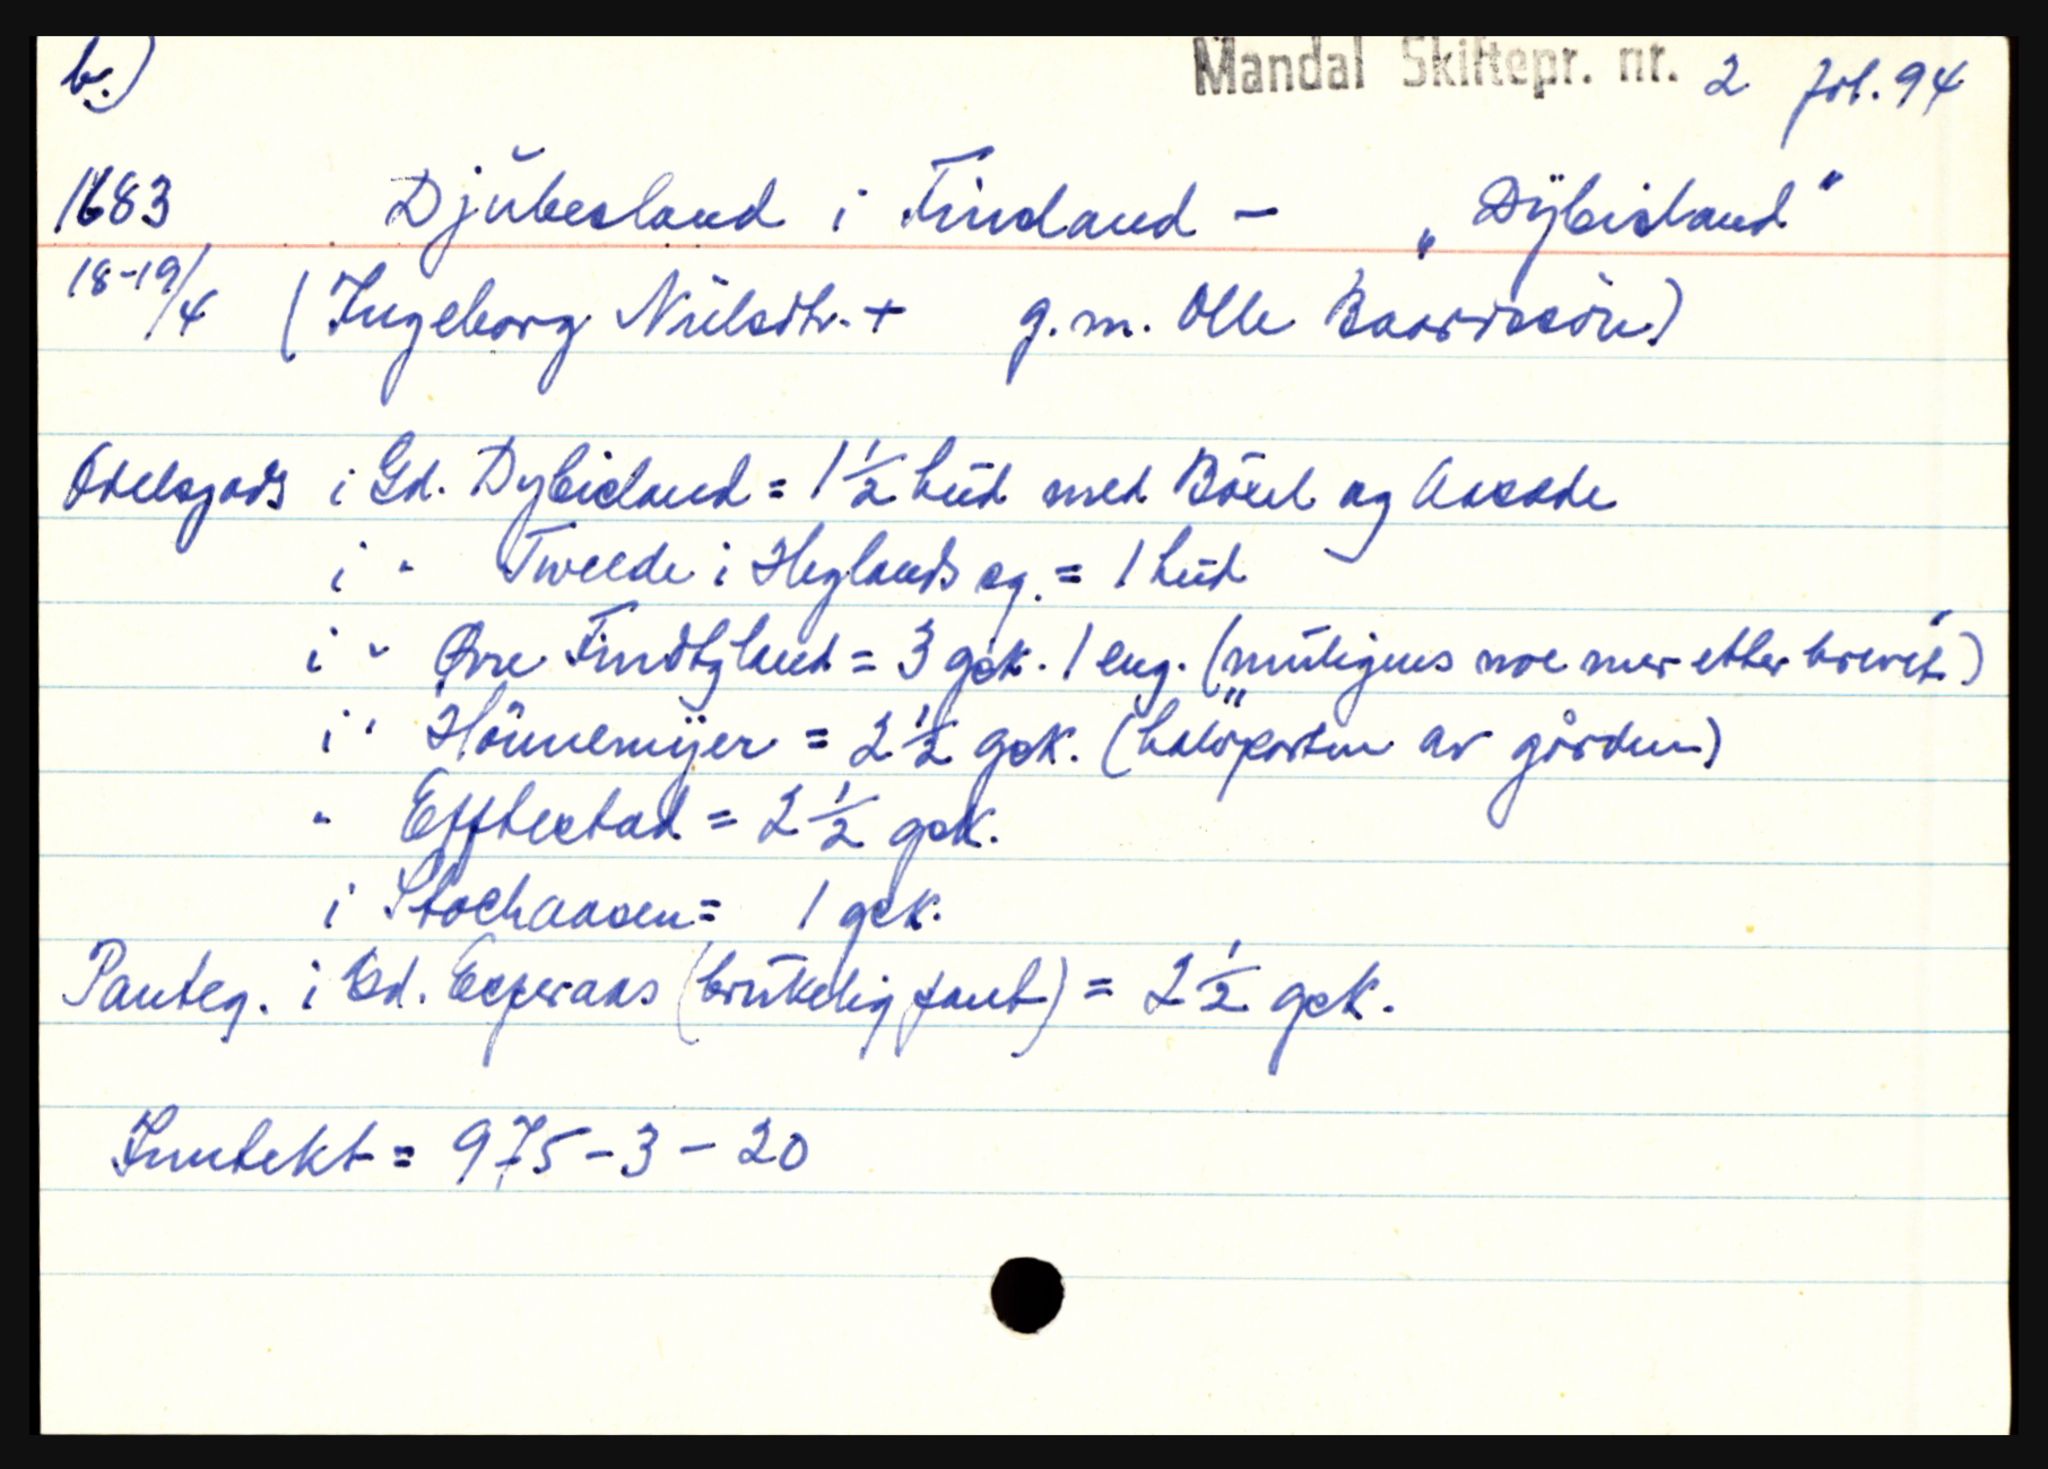 b.) Mandal Skiftepr. nr. 2 fol. 94
1683 Djubesland i Finsland - „Dÿbisland"
18-19/4 (Ingeborg Nielsdtr. + g.m. Olle Baardsøn)
Odelsgods i Gd. Dybisland = 1 ½ hud med Bóxel og Aasæde
i " Tweede i Heglands sg. = 1 hud
i " Øvre Findtzland = 3 gsk. 1 eng. (muligens noe mer etter brevet")
i " Hönnemÿer = 2 ½ gsk. ("halvparten av gården)
" Efftestad = 2 ½ gsk.
i Stochaasen = 1 gsk.
Panteg. i Gd. Eegeraas (brukelig pant) = 2 ½ gsk.
Inntekt = 975 - 3 - 20